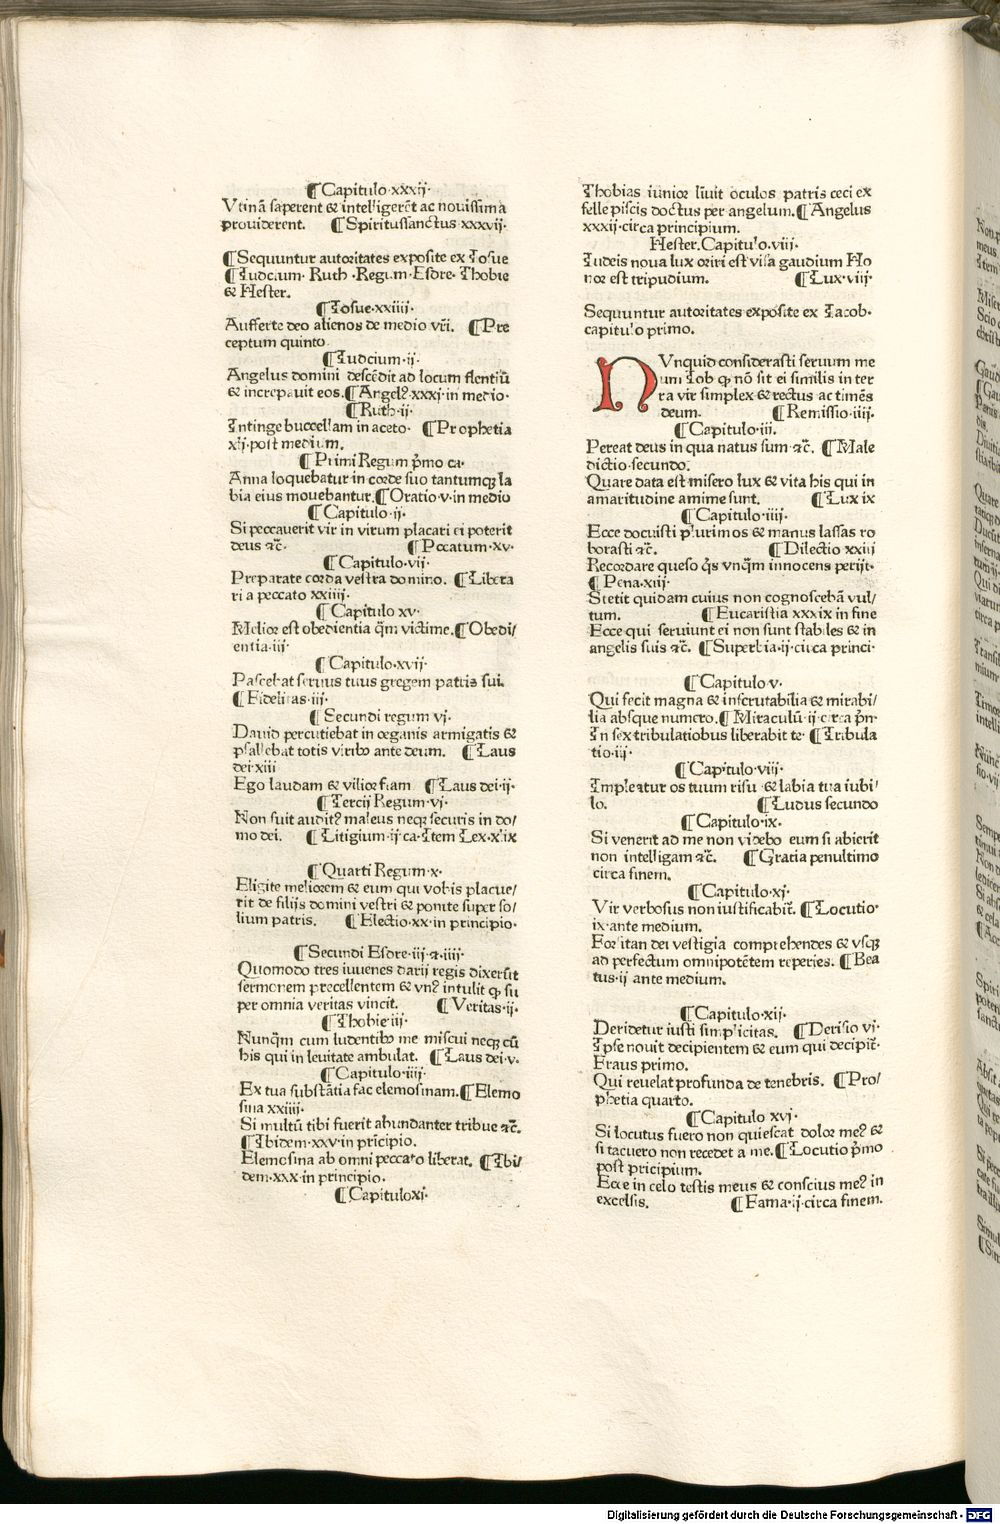 ¶Capitulo·xxxij·
Vtinā saperent ⁊ intelligerēt ac nouissima
prouiderent. ¶Spiritussanctus·xxxvij·
¶Sequuntur autoritates exposite ex Iosue
¶Iudicum· Ruth·Regum·Esdre·Thobie
⁊ Hester.
¶Iosue·xxiiij·
Aufferte deo alienos de medio vr̄i. ¶Pre
ceptum quinto
¶Iudicium·ij·
Angelus domini descēdit ad locum flentiū
⁊ increpauit eos.¶Angelꝰ·xxxj·in medio·
¶Ruth·ij·
Intinge buccellam in aceto· ¶Prophetia
xij·post medium.
¶Primi Regum p̄mo ca·
Anna loquebatur in corde suo tantumqꝫ la
bia eius mouebantur.¶Oratio·v·in medio
¶Capitulo·ij·
Si peccauerit vir in virum placari ei poterit
deus ⁊c̄· ¶Peccatum·xv·
¶Capitulo·vij·
Preparate corda vestra domino. ¶Libera
ri a peccato xxiiij·
¶Capitulo xv·
Melior est obedientia q̄m victime.¶Obedi/
entia·iij·
¶Capitulo·xvij·
Pascebat seruus tuus gregem patris sui.
¶Fidelitas·iij·
¶Secundi regum vj·
Dauid percutiebat in organis armigatis ⁊
psallebat totis viribꝰ ante deum. ¶Laus
dei·xiii
Ego laudam ⁊ vilior fiam ¶Laus dei·ij·
¶Tercij Regum·vj·
Non fuit auditꝰ maleus neqꝫ securis in do/
mo dei. ¶Litigium·ij·ca·Item Lex·xlix
¶Quarti Regum·x·
Eligite meliorem ⁊ eum qui vobis placue/
rit de filijs domini vestri ⁊ ponite super so/
lium patris. ¶Electio·xx·in principio·
¶Secundi Esdre·iij·⁊·iiij·
Quomodo tres iuuenes darij regis dixerūt
sermonem precellentem ⁊ vnꝰ intulit ꝙ su
per omnia veritas vincit. ¶Veritas·ij·
¶Thobie iij·
Nunq̄m cum ludentibꝰ me miscui neqꝫ cū
his qui in leuitate ambulat. ¶Laus dei·v·
¶Capitulo·iiij·
Ex tua substātia fac elemosinam.¶Elemo
sina xxiiij·
Si multū tibi fuerit abundanter tribue ⁊c̄.
¶Ibidem·xxv·in pricipio.
Elemosina ab omni peccato liberat. ¶Ibi/
dem·xxx·in principio·
¶Capitulo xj·
Thobias iunior liuit oculos patris ceci ex
felle piscis doctus per angelum.¶Angelus
xxxij·circa principium.
Hester.Capitulo.viij·
Iudeis noua lux oriri est visa gaudium Ho
nor est tripudium. ¶Lux·viij·
Sequuntur autoritates exposite ex Iacob·
capitulo primo.
NVnquid considerasti seruum me
um Iob ꝙ nō sit ei similis in ter
ra vir simplex ⁊ rectus ac timēs
deum. ¶Remissio·iiij·
¶Capitulo·iii.
Pereat deus in qua natus sum ⁊c̄. ¶Male
dictio·secundo.
Quare data est misero lux ⁊ vita his qui in
amaritudine amime sunt. ¶Lux ix
¶Capitulo·iiij·
Ecce docuisti plurimos ⁊ manus lassas ro
borasti ⁊c̄. ¶Dilectio xxiij
Recordare queso q̄s vnq̄m innocens perijt·
¶Pena·xiij·
Stetit quidam cuius non cognoscebā vul/
tum. ¶Eucaristia xxxix in fine
Ecce qui seruiunt ei non sunt stabiles ⁊ in
angelis suis ⁊c̄. ¶Superbia·ij·circa princi·
¶Capitulo·v·
Qui fecit magna ⁊ inscrutabilia ⁊ mirabi/
lia absque numero.¶Miraculū·ij·circa pn̄·
In sex tribulatiobus liberabit te· ¶Tribula
tio·iij·
¶Capitulo·viij·
Impleatur os tuum risu ⁊ labia tua iubi/
lo. ¶Ludus secundo
¶Capitulo·ix·
Si venerit ad me non videbo eum si abierit
non intelligam ⁊c̄. ¶Gratia penultimo
circa finem.
¶Capitulo·xj·
Vir verbosus non iustificabir̄. ¶Locutio·
ix·ante medium.
Forsitan dei vestigia comprehendes ⁊ vsqꝫ
ad perfectum omnipotētem reperies. ¶Bea
tus·ij ante medium.
¶Capitulo·xij·
Deridetur iusti simplicitas. ¶Derisio vj·
Ipse nouit decipientem ⁊ eum qui decipir̄·
Fraus primo.
Qui reuelat profunda de tenebris. ¶Pro/
phetia quarto.
¶Capitulo xvj·
Si locutus fuero non quiescat dolor meꝰ ⁊
si tacuero non recedet a me.¶Locutio p̄mo
post pricipium.
Ecce in celo testis meus ⁊ conscius meꝰ in
excelsis. ¶Fama·ij·circa finem.
Digitalisierung gefördert durch die Deutsche Forschungsgemeinschaft - DFG